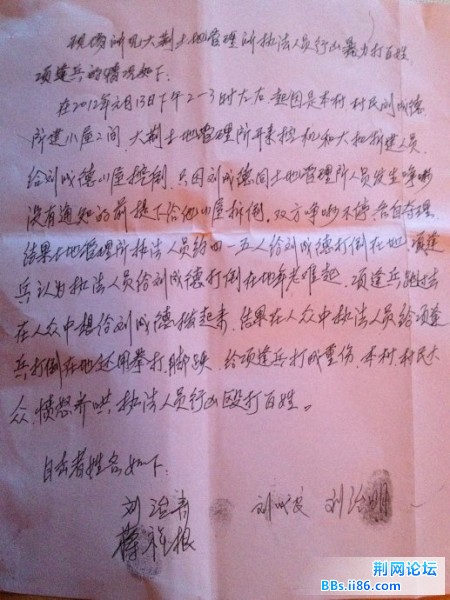 现据所见大荆土地管理所执法人员行凶暴力打百姓
项逢兵的情况如下:
在2012年元月13日下午2-3时左右,起因是本村村民刘成德
所建小屋2间,大荆土地管理所开来挖机和大批拆建人员
给刘成德小屋挖倒,只因刘成德同土地管理所人员发生争吵
没有通知的前提下给他小屋拆倒,双方争吵不停,各自夸理
结果土地管理所执法人员约四-五人给刘成德打倒在地,项逢
兵认为执法人员给刘成德打倒在地年老难起,项逢兵跑过去
在人众中想给刘成德拉起来,结果在人众中执法人员给项逢
兵打倒在地还用拳打脚踢,给项逢兵打成重伤,本村村民大
众愤怒并哄执法人员行凶殴打百姓。
目击者姓名如下:
刘治青 刘成良 刘治明
根
荆网论坛
BBs.ii86.com